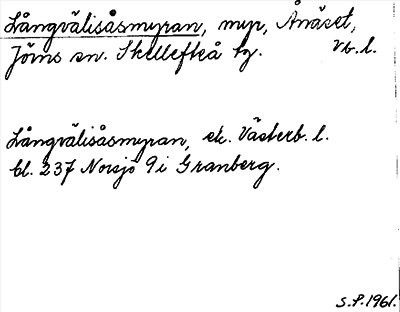 Långvälisåsmyran, myr, Ånäset,
Jörns sn. Skellefteå tg. Vb. l.
Långvälisåsmyran, ek. Västerb. l.
bl. 237 Norsjö 9i Granberg.
S.P. 1961.